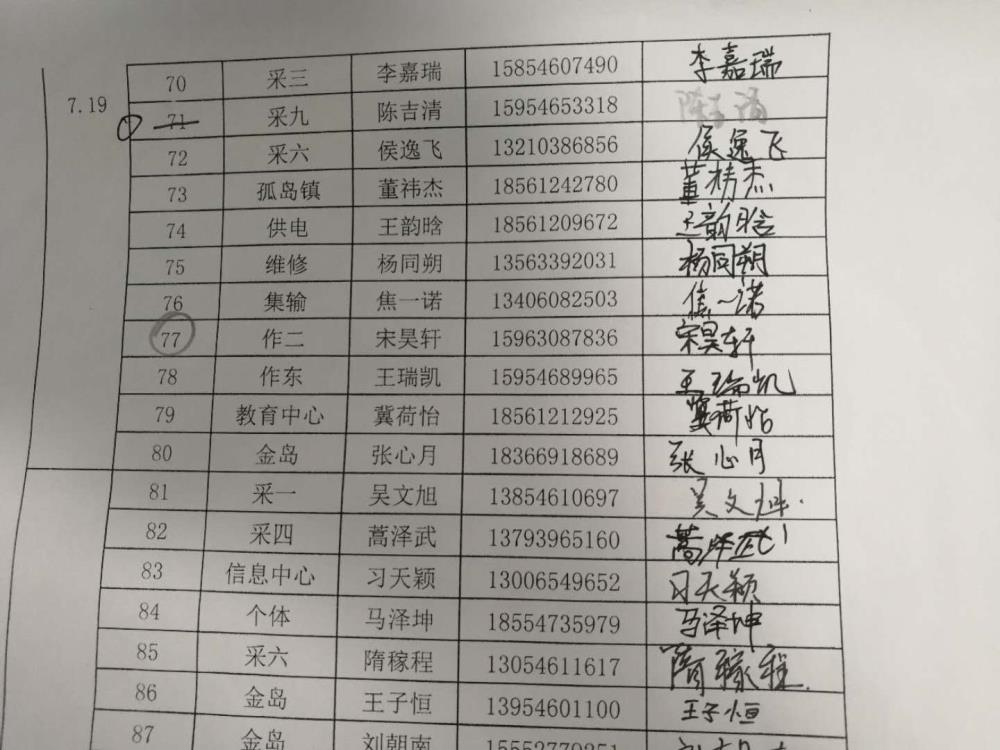 7.19
70 采三 李嘉瑞 15854607490 李嘉瑞
71 采九 陈吉清 15954653318 陈吉清
72 采六 侯逸飞 13210386856 侯逸飞
73 孤岛镇 董祎杰 18561242780 董祎杰
74 供电 王韵晗 18561209672 王韵晗
75 维修 杨同朔 13563392031 杨同朔
76 集输 焦一诺 13406082503 焦一诺
77 作二 宋昊轩 15963087836 宋昊轩
78 作东 王瑞凯 15954689965 王瑞凯
79 教育中心 冀荷怡 18561212925 冀荷怡
80 金岛 张心月 18366918689 张心月
81 采一 吴文旭 13854610697 吴文
82 采四 蒿泽武 13793965160 蒿泽武
83 信息中心 习天颖 13006549652 习天颖
84 个体 马泽坤 18554735979 马泽坤
85 采六 隋稼程 13054611617 隋稼程
86 金岛 王子恒 13954601100 王子恒
87 金岛 刘朝南